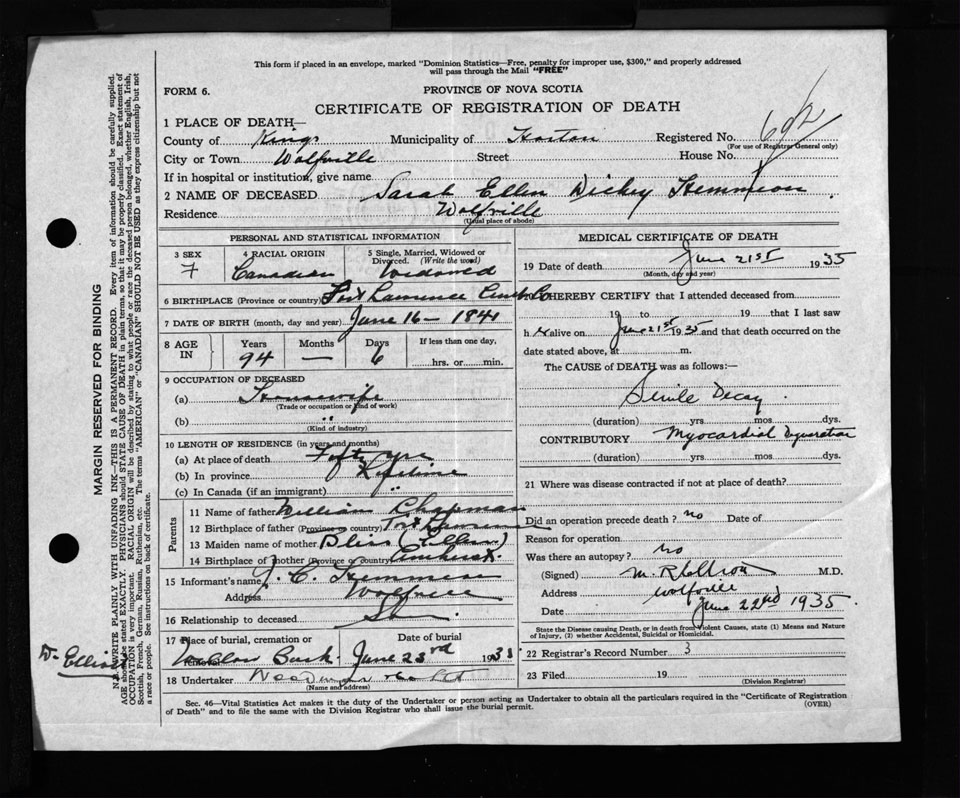 This form if placed in an envelope, marked "Dominion Statistics—Free, penalty for improper use, $300," and properly addressed
will pass through the Mail "FREE"
FORM 6.
PROVINCE OF NOVA SCOTIA
CERTIFICATE OF REGISTRATION OF DEATH
1 PLACE OF DEATH—
County of Kings Municipality of Horton Registered No. 692
(For use of Registrar General only)
City or Town Wolfville Street House No.
If in hospital or institution, give name
2 NAME OF DECEASED Sarah Ellen Dickey Hemmeon
Residence Wolfville
(Usual place of abode)
PERSONAL AND STATISTICAL INFORMATION
3 SEX 4 RACIAL ORIGIN 5 Single, Married, Widowed or Divorced. (Write the word)
F Canadian Widowed
6 BIRTHPLACE (Province or country) Fort Lawrence Cumb Co
7 DATE OF BIRTH (month, day and year) June 16 – 1841
8 AGE IN Years Months Days If less than one day,
94 — 6 hrs. or min.
9 OCCUPATION OF DECEASED
(a) Housewife
(Trade or occupation or kind of work)
(b) "
(Kind of industry)
10 LENGTH OF RESIDENCE (in years and months)
(a) At place of death Fifty yrs
(b) In province Lifetime
(c) In Canada (if an immigrant)
Parents
11 Name of father William Chapman
12 Birthplace of father (Province or country) Fort Lawrence
13 Maiden name of mother Bliss (Ellen)
14 Birthplace of mother (Province or country) Amherst
15 Informant's name J. C. Hemmeon
Address Wolfville
16 Relationship to deceased Son
17 Place of burial, cremation or Date of burial
Bank June 23rd 1935
18 Undertaker
(Name and address)
MEDICAL CERTIFICATE OF DEATH
19 Date of death June 21st 1935
(Month, day and year)
HEREBY CERTIFY that I attended deceased from
19 to 19 that I last saw
h er alive on June 21st 1935 and that death occurred on the
date stated above, at m.
The CAUSE of DEATH was as follows:—
Senile Decay
(duration) yrs mos dys.
CONTRIBUTORY Myocardial
(duration) yrs mos dys.
21 Where was disease contracted if not at place of death?
Did an operation precede death? no Date of
Reason for operation
Was there an autopsy? no
(Signed) M. R. Elliott M.D.
Address Wolfville
Date June 22nd 1935
State the Disease causing Death, or in death from Violent Causes, state (1) Means and Nature of Injury, (2) whether Accidental, Suicidal or Homicidal.
22 Registrar's Record Number 3
23 Filed 19
(Division Registrar)
Sec. 46—Vital Statistics Act makes it the duty of the Undertaker or person acting as Undertaker to obtain all the particulars required in the "Certificate of Registration
of Death" and to file the same with the Division Registrar who shall issue the burial permit.
(OVER)
MARGIN RESERVED FOR BINDING
N.B.—WRITE PLAINLY WITH UNFADING INK—THIS IS A PERMANENT RECORD. Every item of information should be carefully supplied.
AGE should be stated EXACTLY. PHYSICIANS should STATE CAUSE OF DEATH in plain terms, so that it may be properly classified. Exact statement of
OCCUPATION is very important. RACIAL ORIGIN will be described by stating to what people or race the deceased person belonged, whether English, Irish,
Scottish, French, German, Russian, Ruthenian, etc. The terms "AMERICAN" or "CANADIAN" SHOULD NOT BE USED as they express citizenship but not
a race or people. See instructions on back of certificate.
Dr Elliott